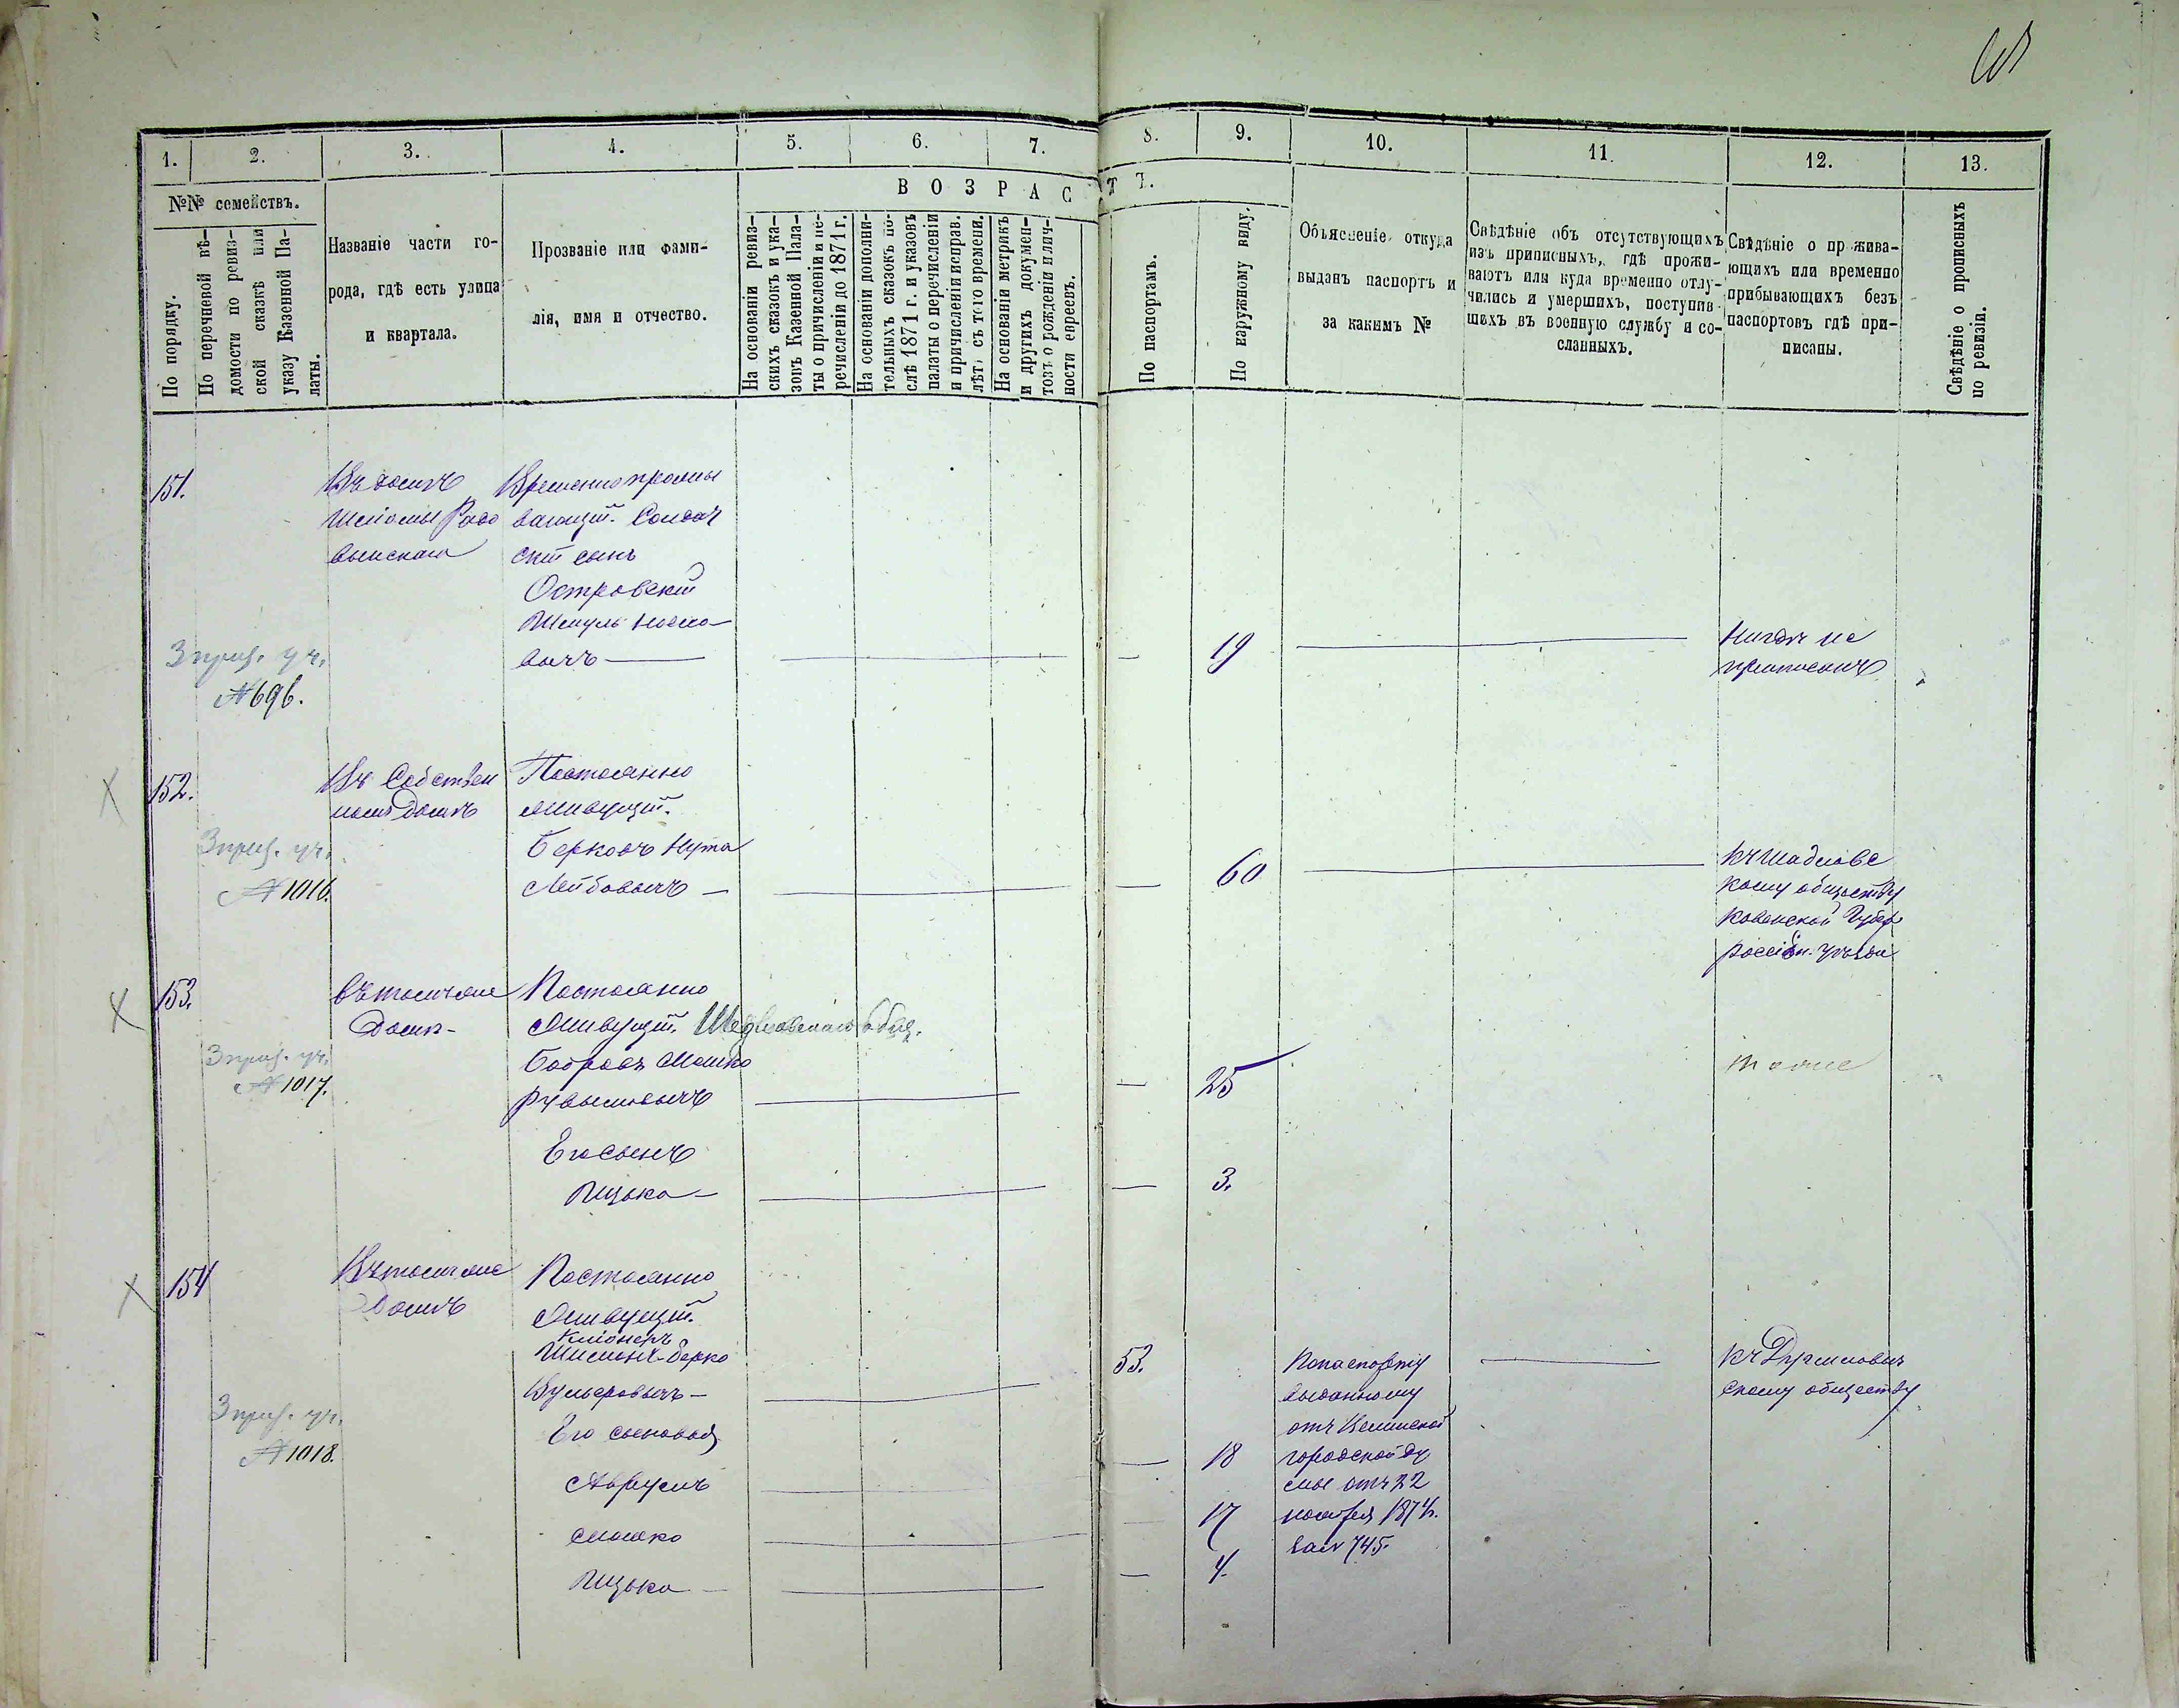 1.
2.
3.
4.
5.
6.
7.
8.
9.
10.
11.
12.
13.
№№ семействъ.
По порядку.
По перечневой вѣ-
домости по ревиз-
ской сказкѣ или
указу Казенной Па-
латы.
Названіе части го-
рода, гдѣ есть улица
и квартала.
Прозваніе или фами-
лія, имя и отчество.
ВОЗРАСТЪ.
На основаніи ревиз-
скихъ сказокъ и ука-
зовъ Казенной Пала-
ты о причисленіи и пе-
речисленіи до 1871 г.
На основаніи дополни-
тельныхъ сказокъ по-
слѣ 1871 г. и указовъ
палаты о перечисленіи
и причисленіи исправ.
лѣтъ съ того времени.
На основаніи метрикъ
и другихъ докумен-
товъ о рожденіи и лич-
ности евреевъ.
По паспортамъ.
По наружному виду.
Объясненіе откуда
выданъ паспортъ и
за какимъ №
Свѣдѣніе объ отсутствующихъ
изъ приписныхъ, гдѣ прожи-
ваютъ или куда временно отлу-
чились и умершихъ, поступив-
шихъ въ военную службу и со-
сланныхъ.
Свѣдѣніе о прожива-
ющихъ или временно
прибывающихъ безъ
паспортовъ гдѣ при-
писаны.
Свѣдѣніе о прописныхъ
по ревизіи.
151.
Въ домѣ
Шліомы
Временно прожи
вающій. Солдат
скій сынъ
Островскій
Шмуль Носко-
вичъ
19
Нигдѣ не
приписанъ
3 приз. уч.
№ 696.
152.
Въ Собствен
номъ домѣ
Постоянно
живущій.
Берковъ Нута
Лейбовичъ
60
Къ Шадовс
кому обществу
Ковенской Губер
россіен. уѣзда
3 приз. уч.
№ 1016.
153.
Въ томъ же
домѣ
Постоянно
живущій.
Бобровъ Мошко
Рувиновичъ
25
тоже
3 приз. уч.
№ 1017.
Его сынъ
Ицько
3.
154
Въ томъ же
домѣ
Постоянно
живущій.
Кліонеръ
Шимонъ-Берко
Вульфовичъ
53.
По паспорту
выданному
отъ Виленской
городской Ду
мы отъ 22
ноября 1874 г.
за № 745.
обществу
3 приз. уч.
№ 1018.
Его сыновья
Абрумъ
18
Мошко
17
Ицько
4.